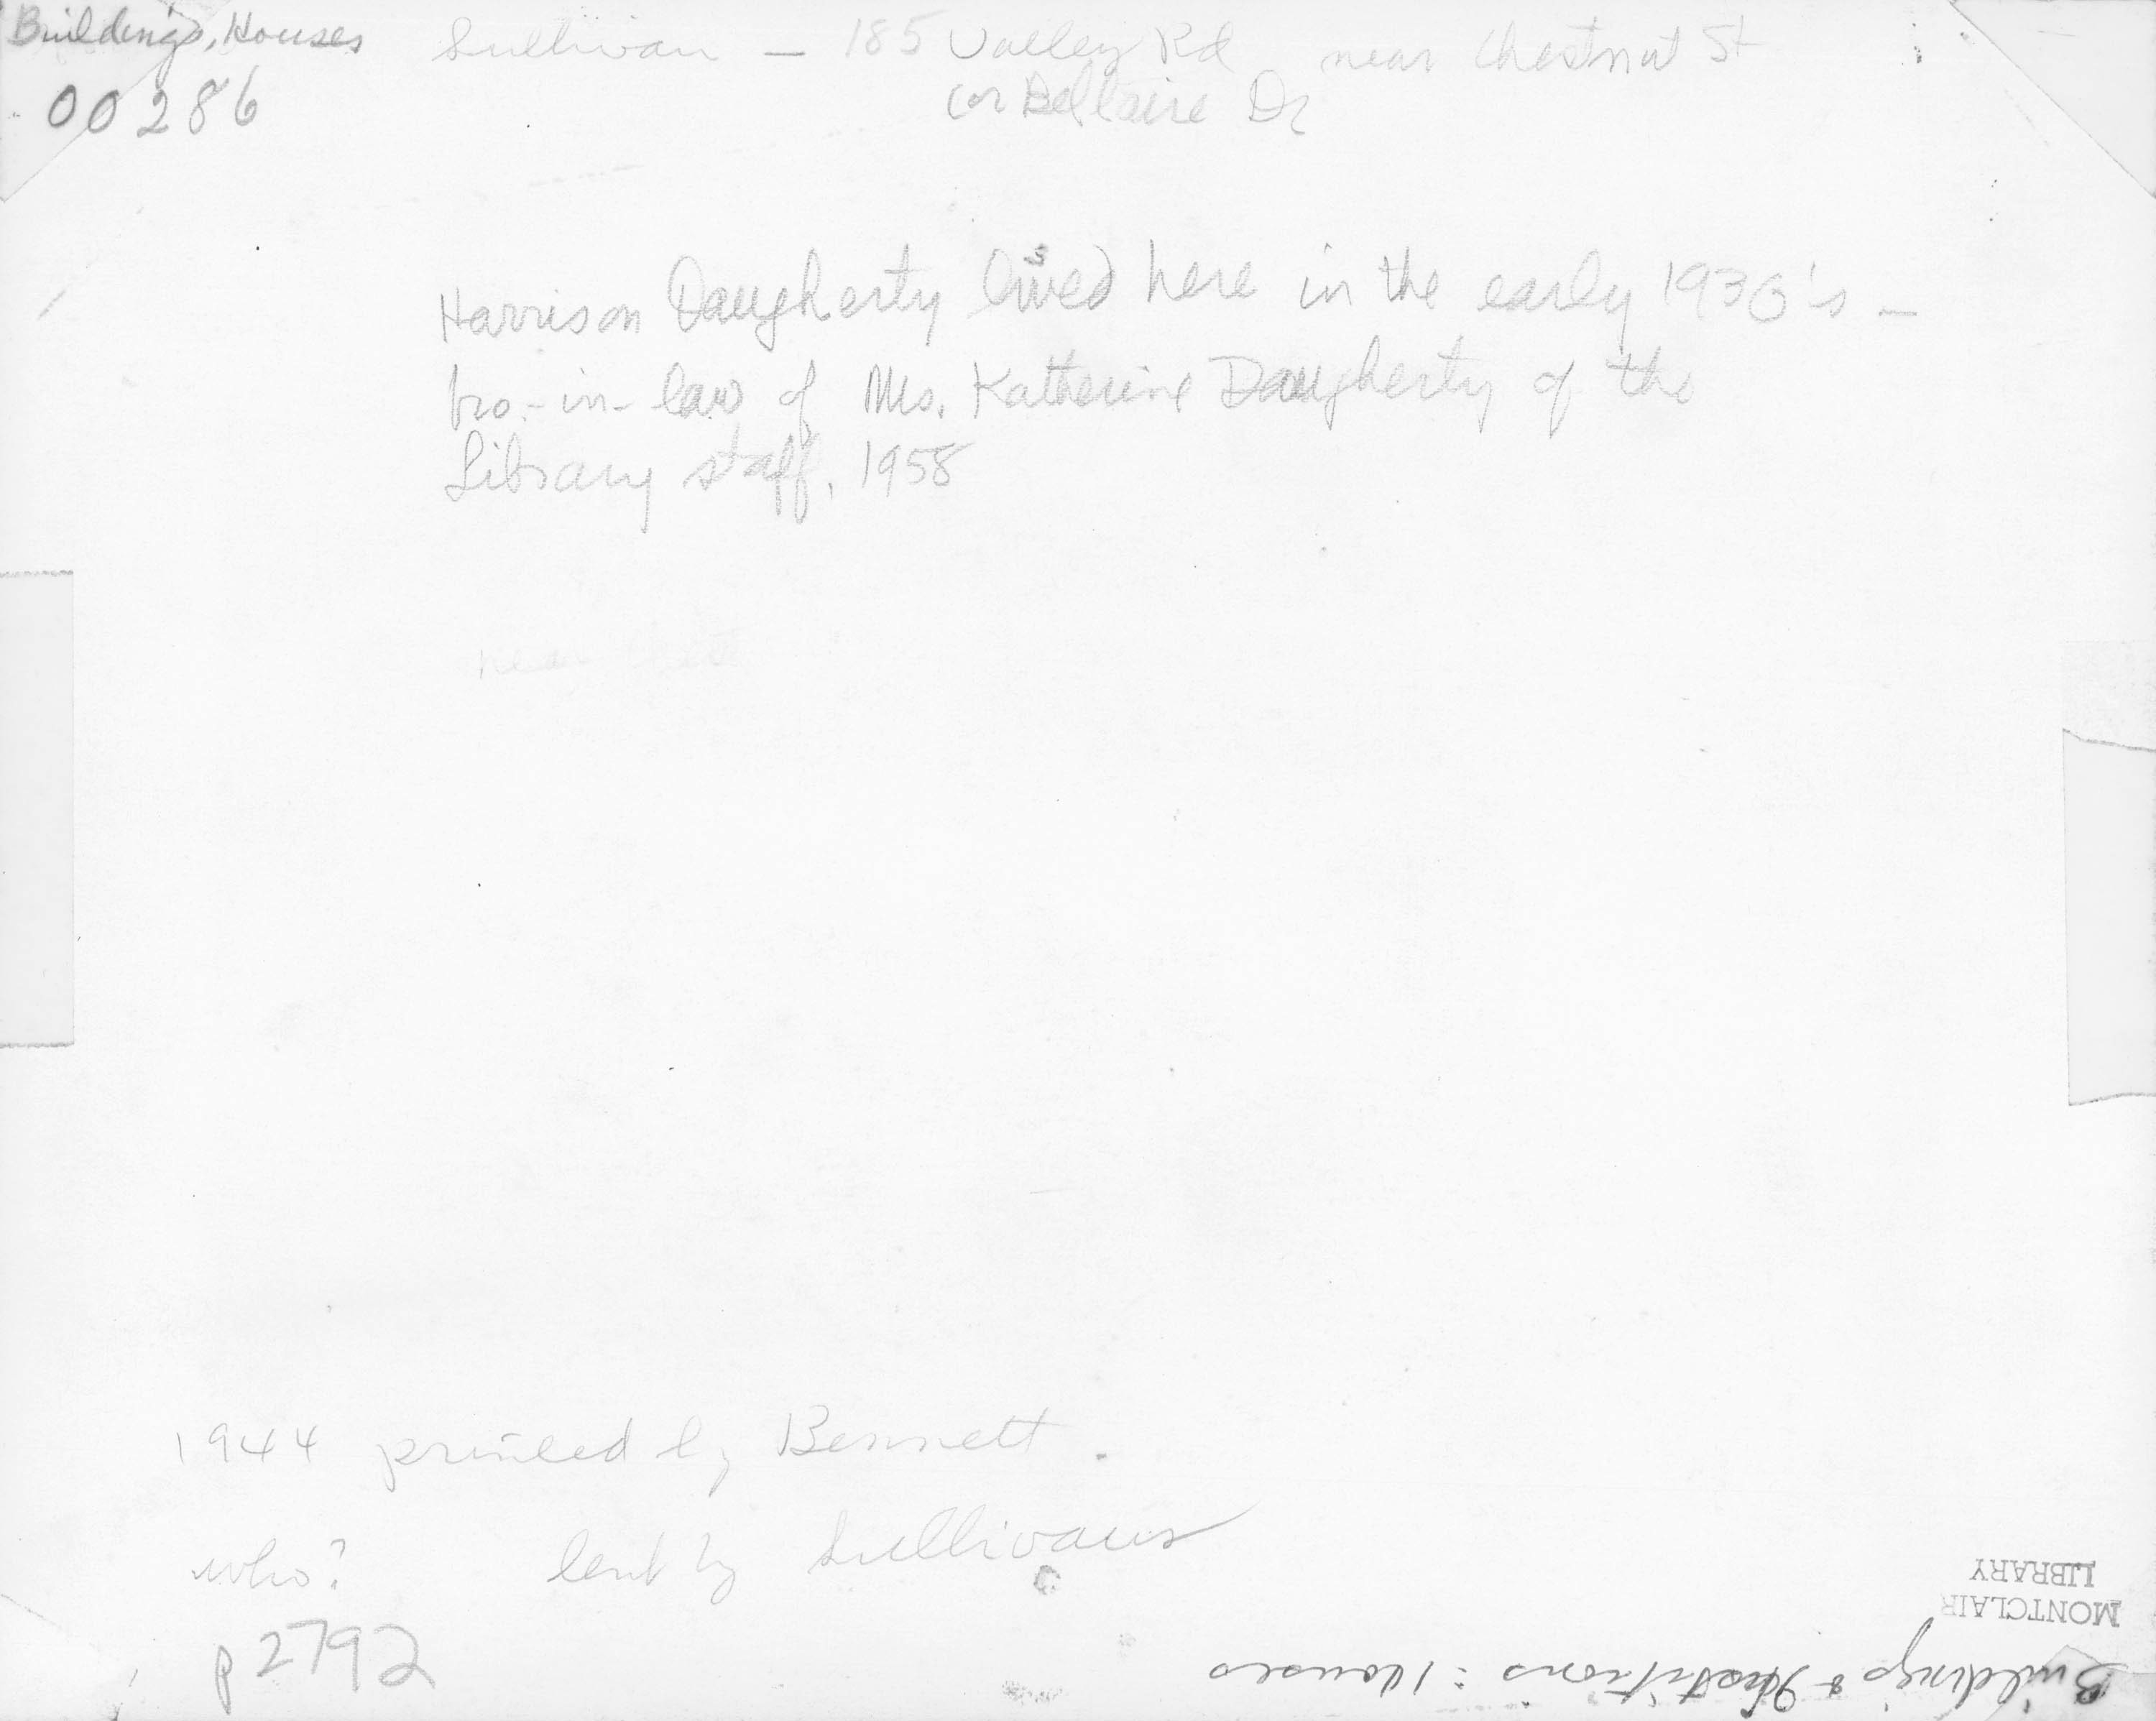 Buildings, Houses Sullivan — 185 Valley Rd near Chestnut St
00286
cor Bellaire Dr
Harrison Daugherty lived here in the early 1930's —
bro.-in-law of Mrs. Katherine Daugherty of the
Library staff, 1958
near Chest
1944 printed by Bennett.
who? lent by Sullivans
p2792
MONTCLAIR
LIBRARY
Buildings & Institutions: Houses